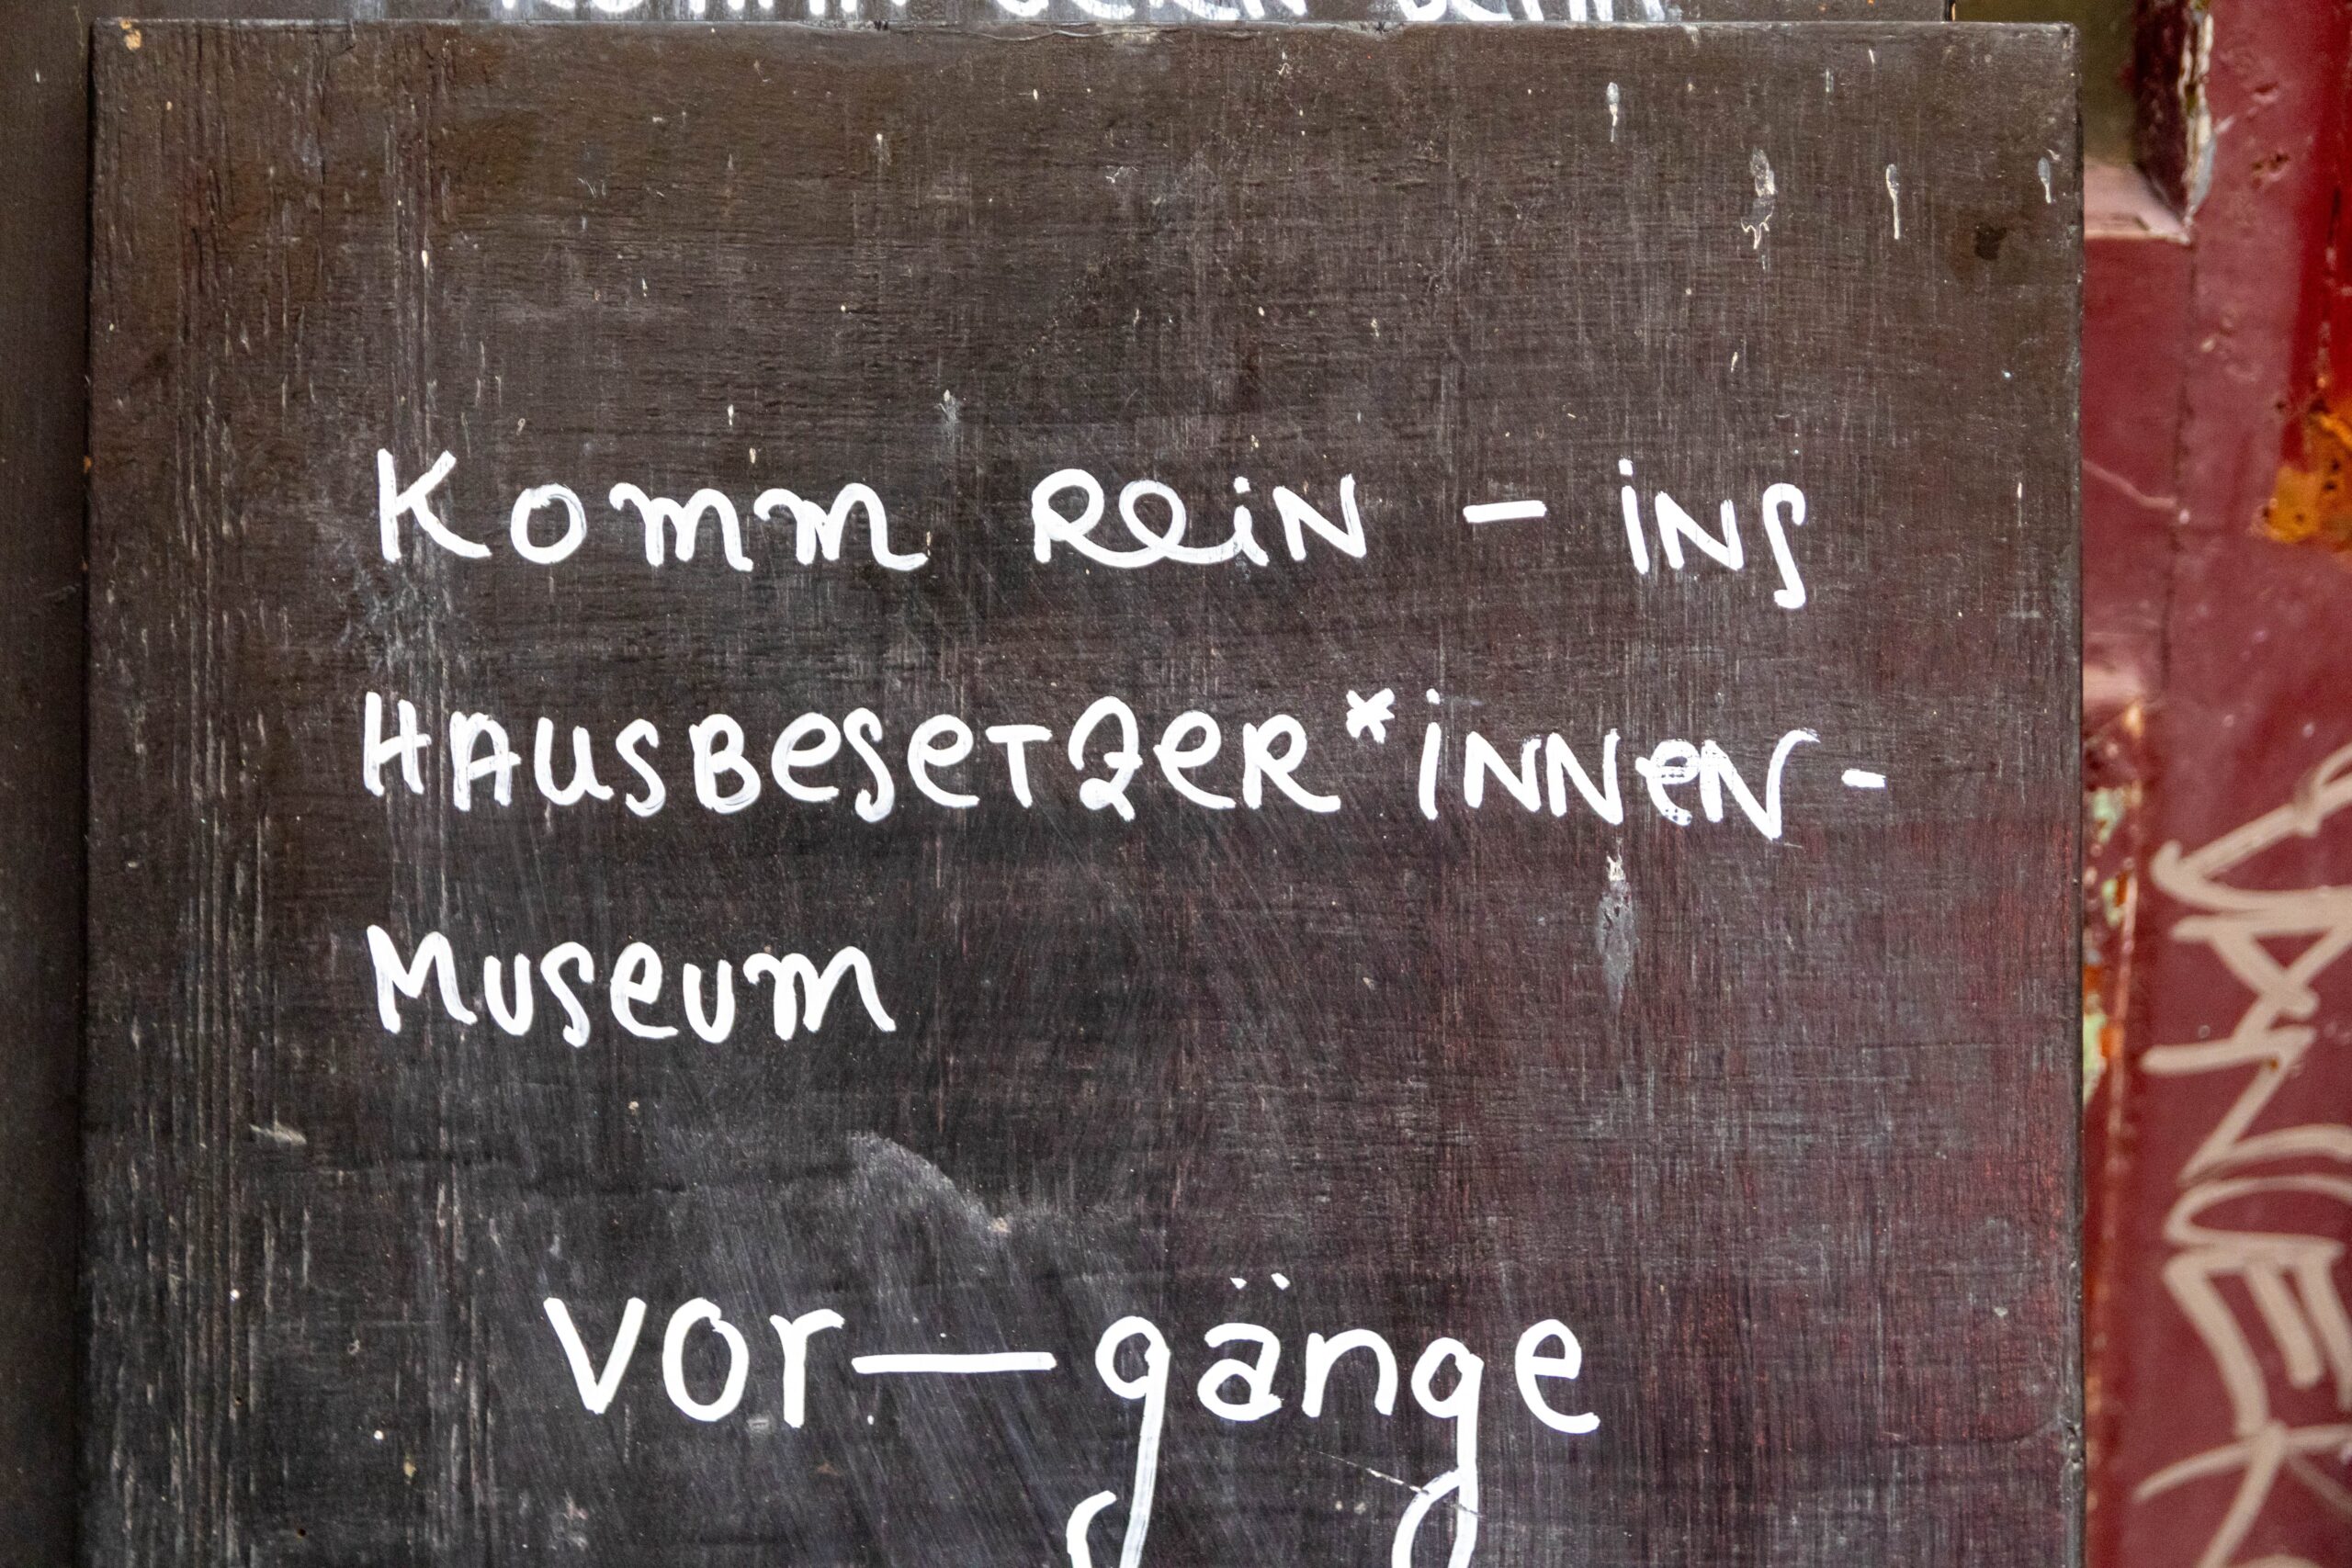 Komm Rein - ins
Hausbesetzer*innen-
Museum
vor—gänge